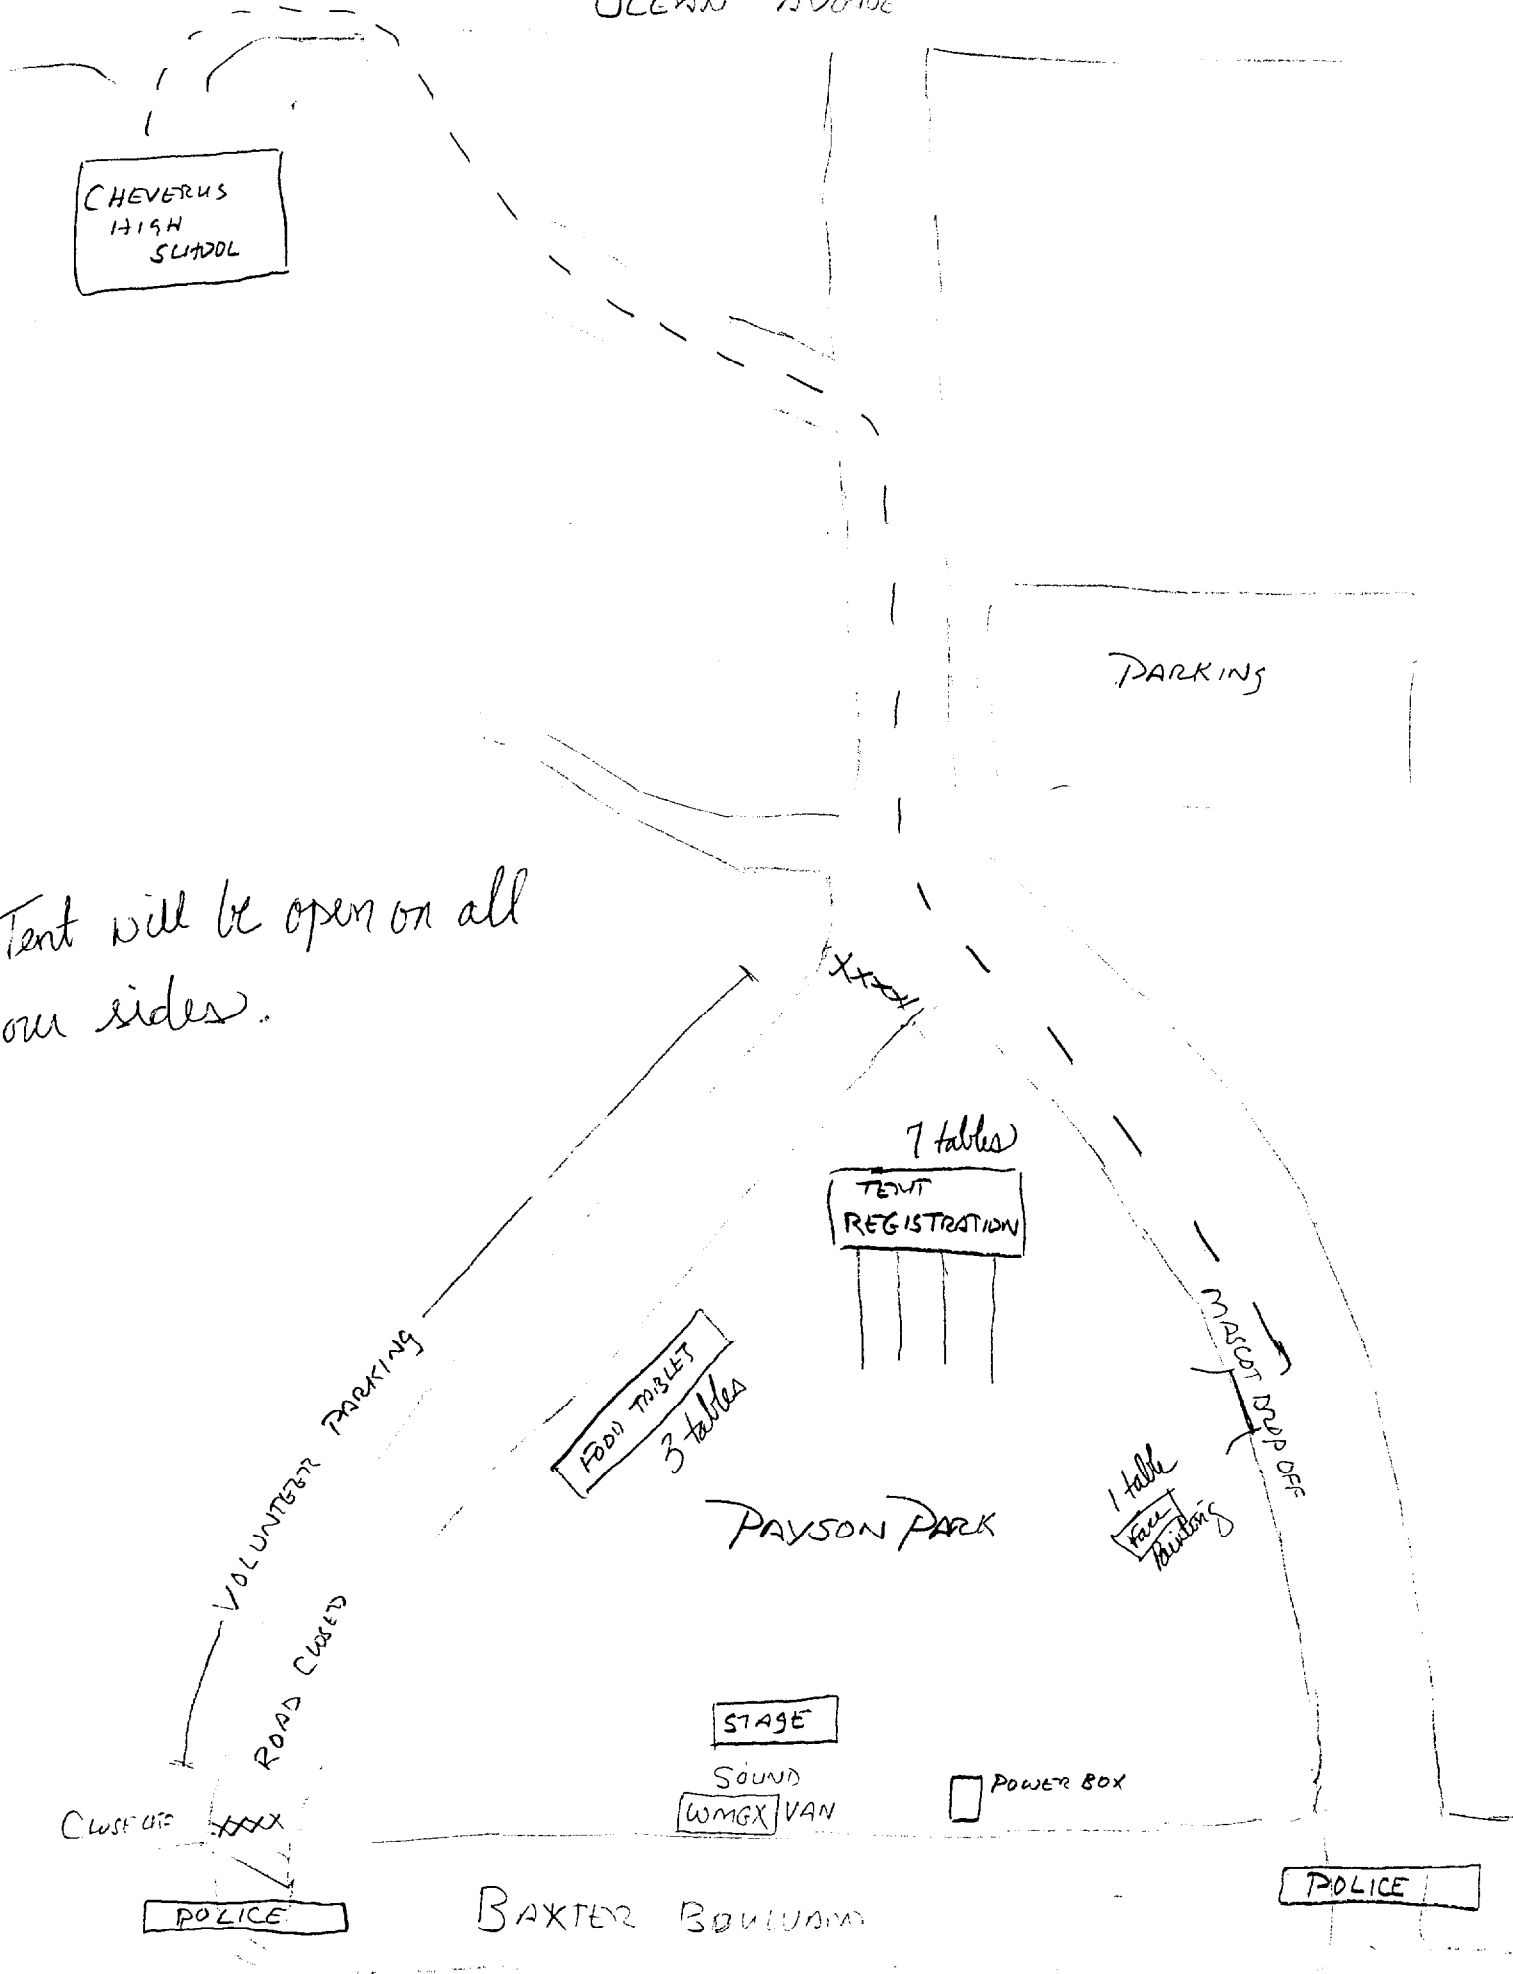 OCEAN AVENUE
CHEVERUS
HIGH
SCHOOL
PARKING
Tent will be open on all
our sides.
XXXX
7 tables
TENT
REGISTRATION
MASCOT DROP OFF
VOLUNTEER PARKING
FOOD TABLES
3 tables
1 table
Face
Painting
PAYSON PARK
ROAD CLOSED
STAGE
SOUND
WMGX VAN
POWER BOX
CLOSE OFF XXXX
POLICE
BAXTER BOULVARD
POLICE